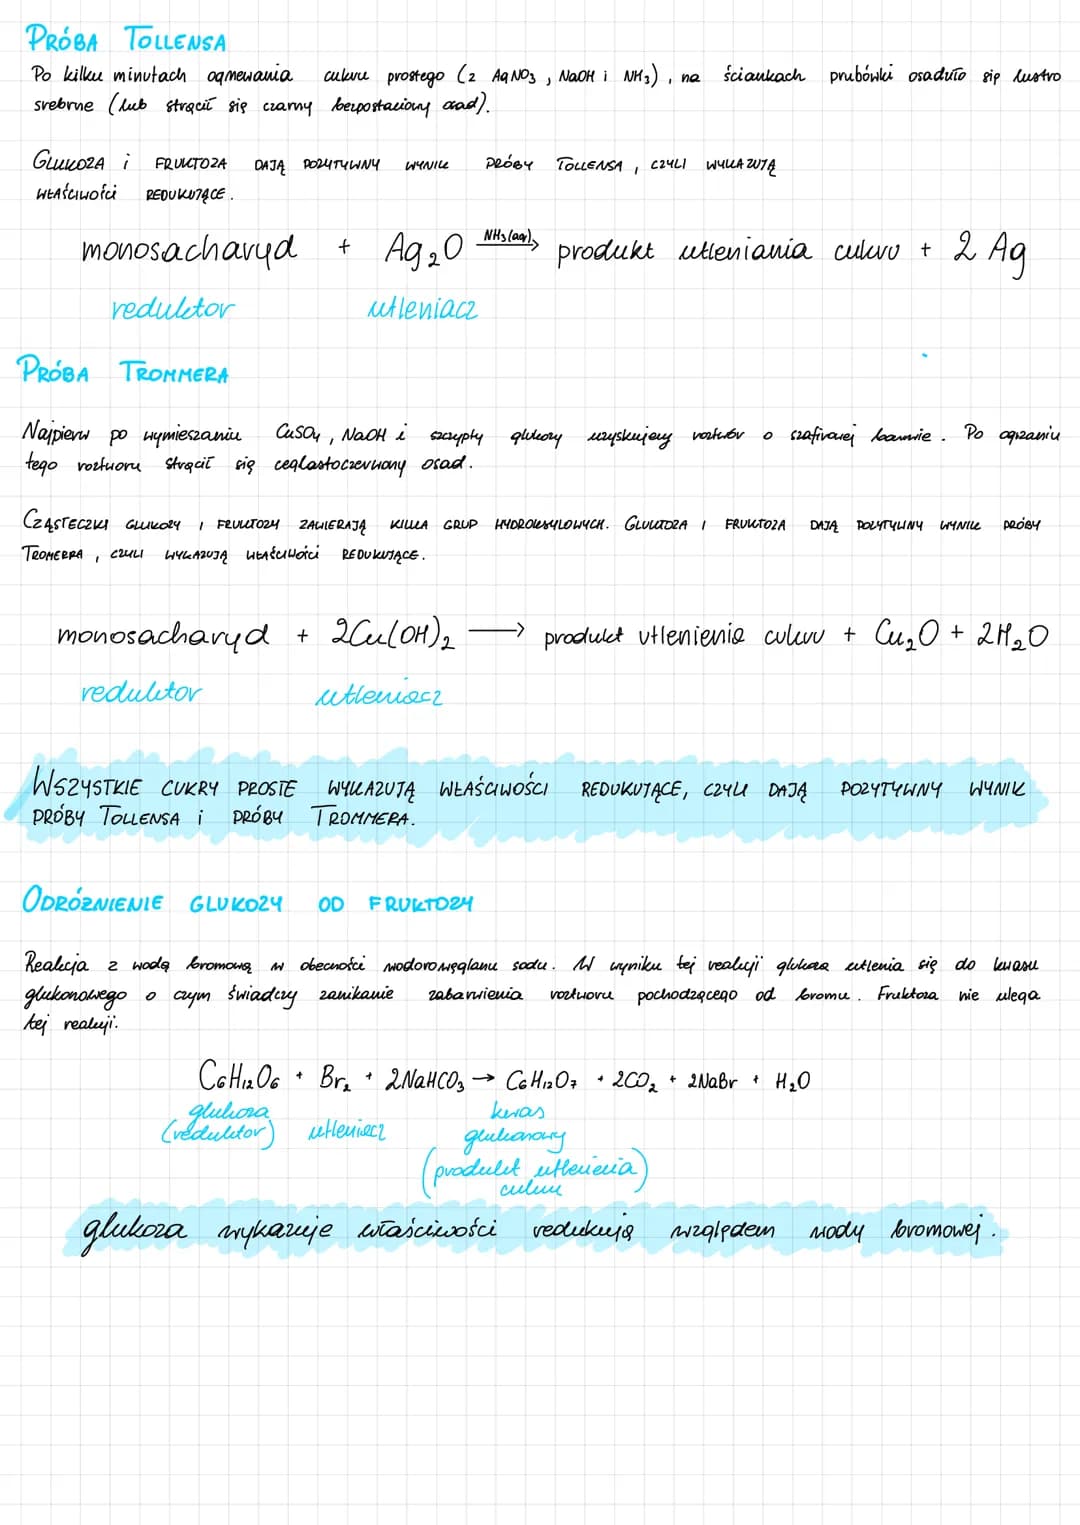 PRÓBA TOLLENSA
Po kilku minutach ogrzewania cukru prostego (z AgNO₃, NaOH i NH₃), na ściankach prubówki osaduło się lustro
srebrne (lub strącił się czarny bezpostaciowy osad).
GLUKOZA i FRUKTOZA DAJĄ POZYTYWNY WYNIK PRÓBY TOLLENSA, CZYLI WYKAZUJĄ
WŁAŚCIWOŚCI REDUKUJĄCE.
monosacharyd + Ag₂O NH₃(aq)→ produkt utleniania cukru + 2 Ag
reduktor utleniacz
PRÓBA TROMMERA
Najpierw po wymieszaniu CuSO₄, NaOH i szczypty glukozy uzyskujemy roztwór o szafirowej barwie. Po ogrzaniu
tego roztworu strącił się ceglastoczerwony osad.
CZĄSTECZKI GLUKOZY I FRUKTOZY ZAWIERAJĄ KILKA GRUP HYDROKSYLOWYCH. GLUKOZA I FRUKTOZA DAJĄ POZYTYWNY WYNIK PRÓBY
TROMERRA, CZYLI WYKAZUJĄ WŁAŚCIWOŚCI REDUKUJĄCE.
monosacharyd + 2Cu(OH)₂ → produkt utlenienia cukru + Cu₂O + 2H₂O
reduktor utleniacz
WSZYSTKIE CUKRY PROSTE WYKAZUJĄ WŁAŚCIWOŚCI REDUKUJĄCE, CZYLI DAJĄ POZYTYWNY WYNIK
PRÓBY TOLLENSA i PRÓBY TROMMERA.
ODRÓŻNIENIE GLUKOZY OD FRUKTOZY
Reakcja z wodą bromową w obecności wodorowęglanu sodu. W wyniku tej reakcji glukoza utlenia się do kwasu
glukonowego o czym świadczy zanikanie zabarwienia roztworu pochodzącego od bromu. Fruktoza nie ulega
tej reakcji.
C₆H₁₂O₆ + Br₂ + 2NaHCO₃ → C₆H₁₂O₇ + 2CO₂ + 2NaBr + H₂O
glukoza kwas
(reduktor) utleniacz glukonowy
(produkt utlenienia
cukru)
glukoza wykazuje właściwości redukują względem wody bromowej.